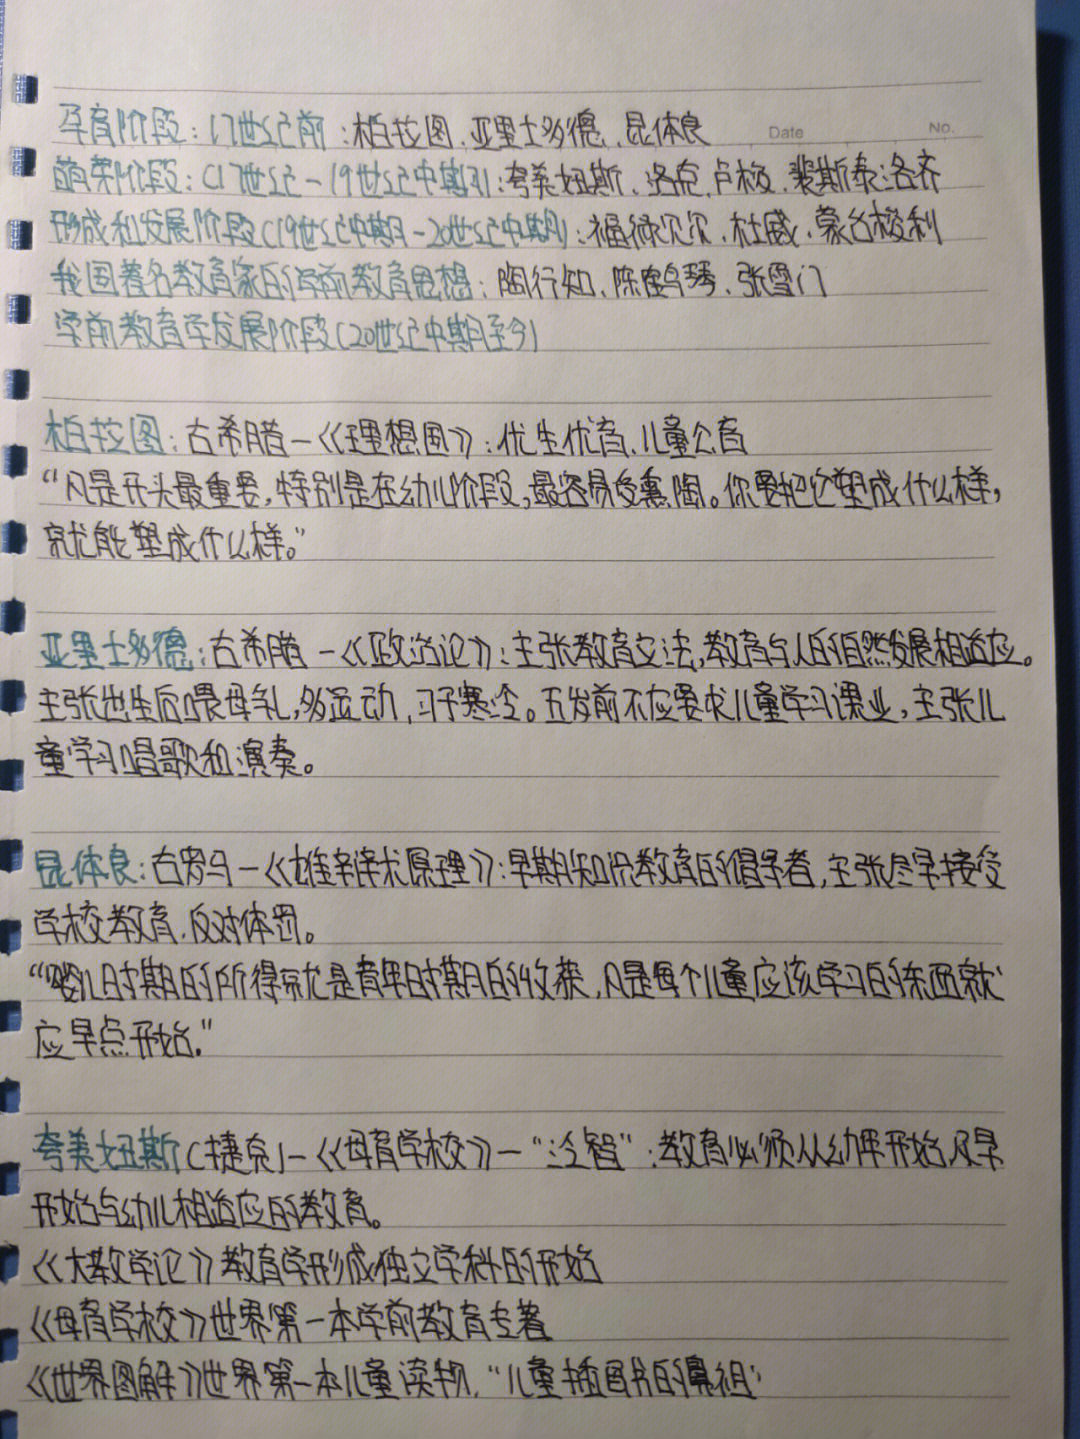 孕育阶段：17世纪前：柏拉图、亚里士多德、昆体良
Date No.
萌芽阶段：(17世纪-19世纪中期)：夸美妞斯、洛克、卢梭、裴斯泰洛齐
形成和发展阶段(19世纪中期-20世纪中期)：福禄贝尔、杜威、蒙台梭利
我国著名教育家的学前教育思想：陶行知、陈鹤琴、张雪门
学前教育学发展阶段(20世纪中期至今)
柏拉图：古希腊-《理想国》：优生优育、儿童公育
“凡是开头最重要，特别是在幼儿阶段，最容易受熏陶。你要把它塑成什么样，
就能塑成什么样。”
亚里士多德：古希腊-《政治论》：主张教育立法，教育与人的自然发展相适应。
主张出生后喂母乳，多运动，习于寒冷。五岁前不应要求儿童学习课业，主张儿
童学习唱歌和演奏。
昆体良：古罗马-《雄辩术原理》：早期知识教育的倡导者，主张尽早接受
学校教育，反对体罚。
“婴儿时期的所得就是青年时期的收获，凡是每个儿童应该学习的东西就
应早点开始。”
夸美妞斯(捷克)-《母育学校》-“泛智”：教育必须从幼年开始，及早
开始与幼儿相适应的教育。
《大教学论》教育学形成独立学科的开始
《母育学校》世界第一本学前教育专著
《世界图解》世界第一本儿童读物，“儿童插图书的鼻祖”